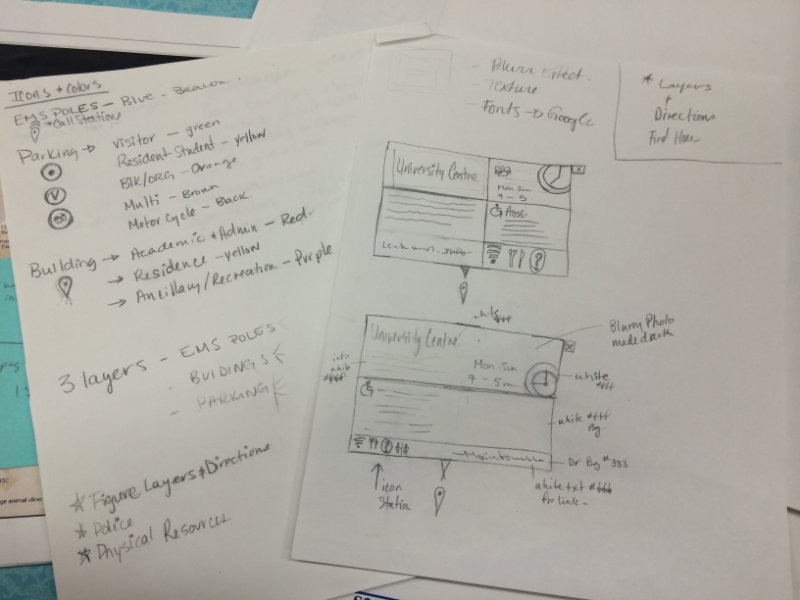 Icons & Colors
EMS POLES - Blue - Beacon
* Call Station
Parking → Visitor - green
Resident Student - yellow
Blk/ORG - Orange
Multi - Brown
Motor Cycle - Back
V
Building → Academic & Admin - Red.
→ Residence - yellow
→ Ancillary/Recreation - Purple
3 layers - EMS POLES
- BUILDINGS
- PARKING
* Figure Layers & Directions
* Police
* Physical Resources
- Blurr Effect.
- Texture
- Fonts → Google
* Layers
&
Directions
Find Here
University Centre
Mon-Sun
9 - 5
Access.
?
white #fff
University Centre
Mon-Sun
9 - 5
Blurry Photo
made dark
white
#fff
white #fff
Bg
?
Dr Bg #333
icon
white txt #fff
for link -